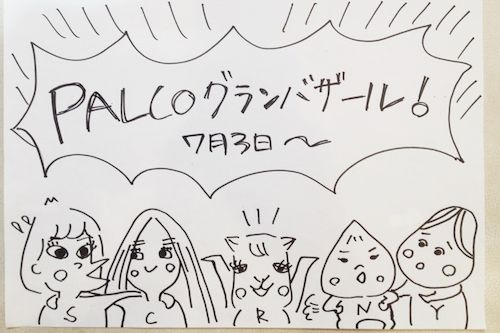 PALCOグランバザール!
7月3日〜
S C R N Y